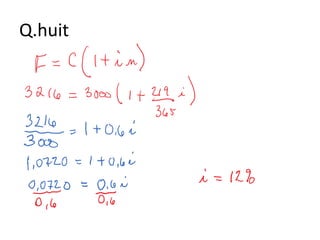 Q.huit
F = C(1 + i n)
3216 = 3000(1 + 219/365 i)
3216/3000 = 1 + 0,6 i
1,0720 = 1 + 0,6 i
0,0720/0,6 = 0,6 i/0,6
i = 12%